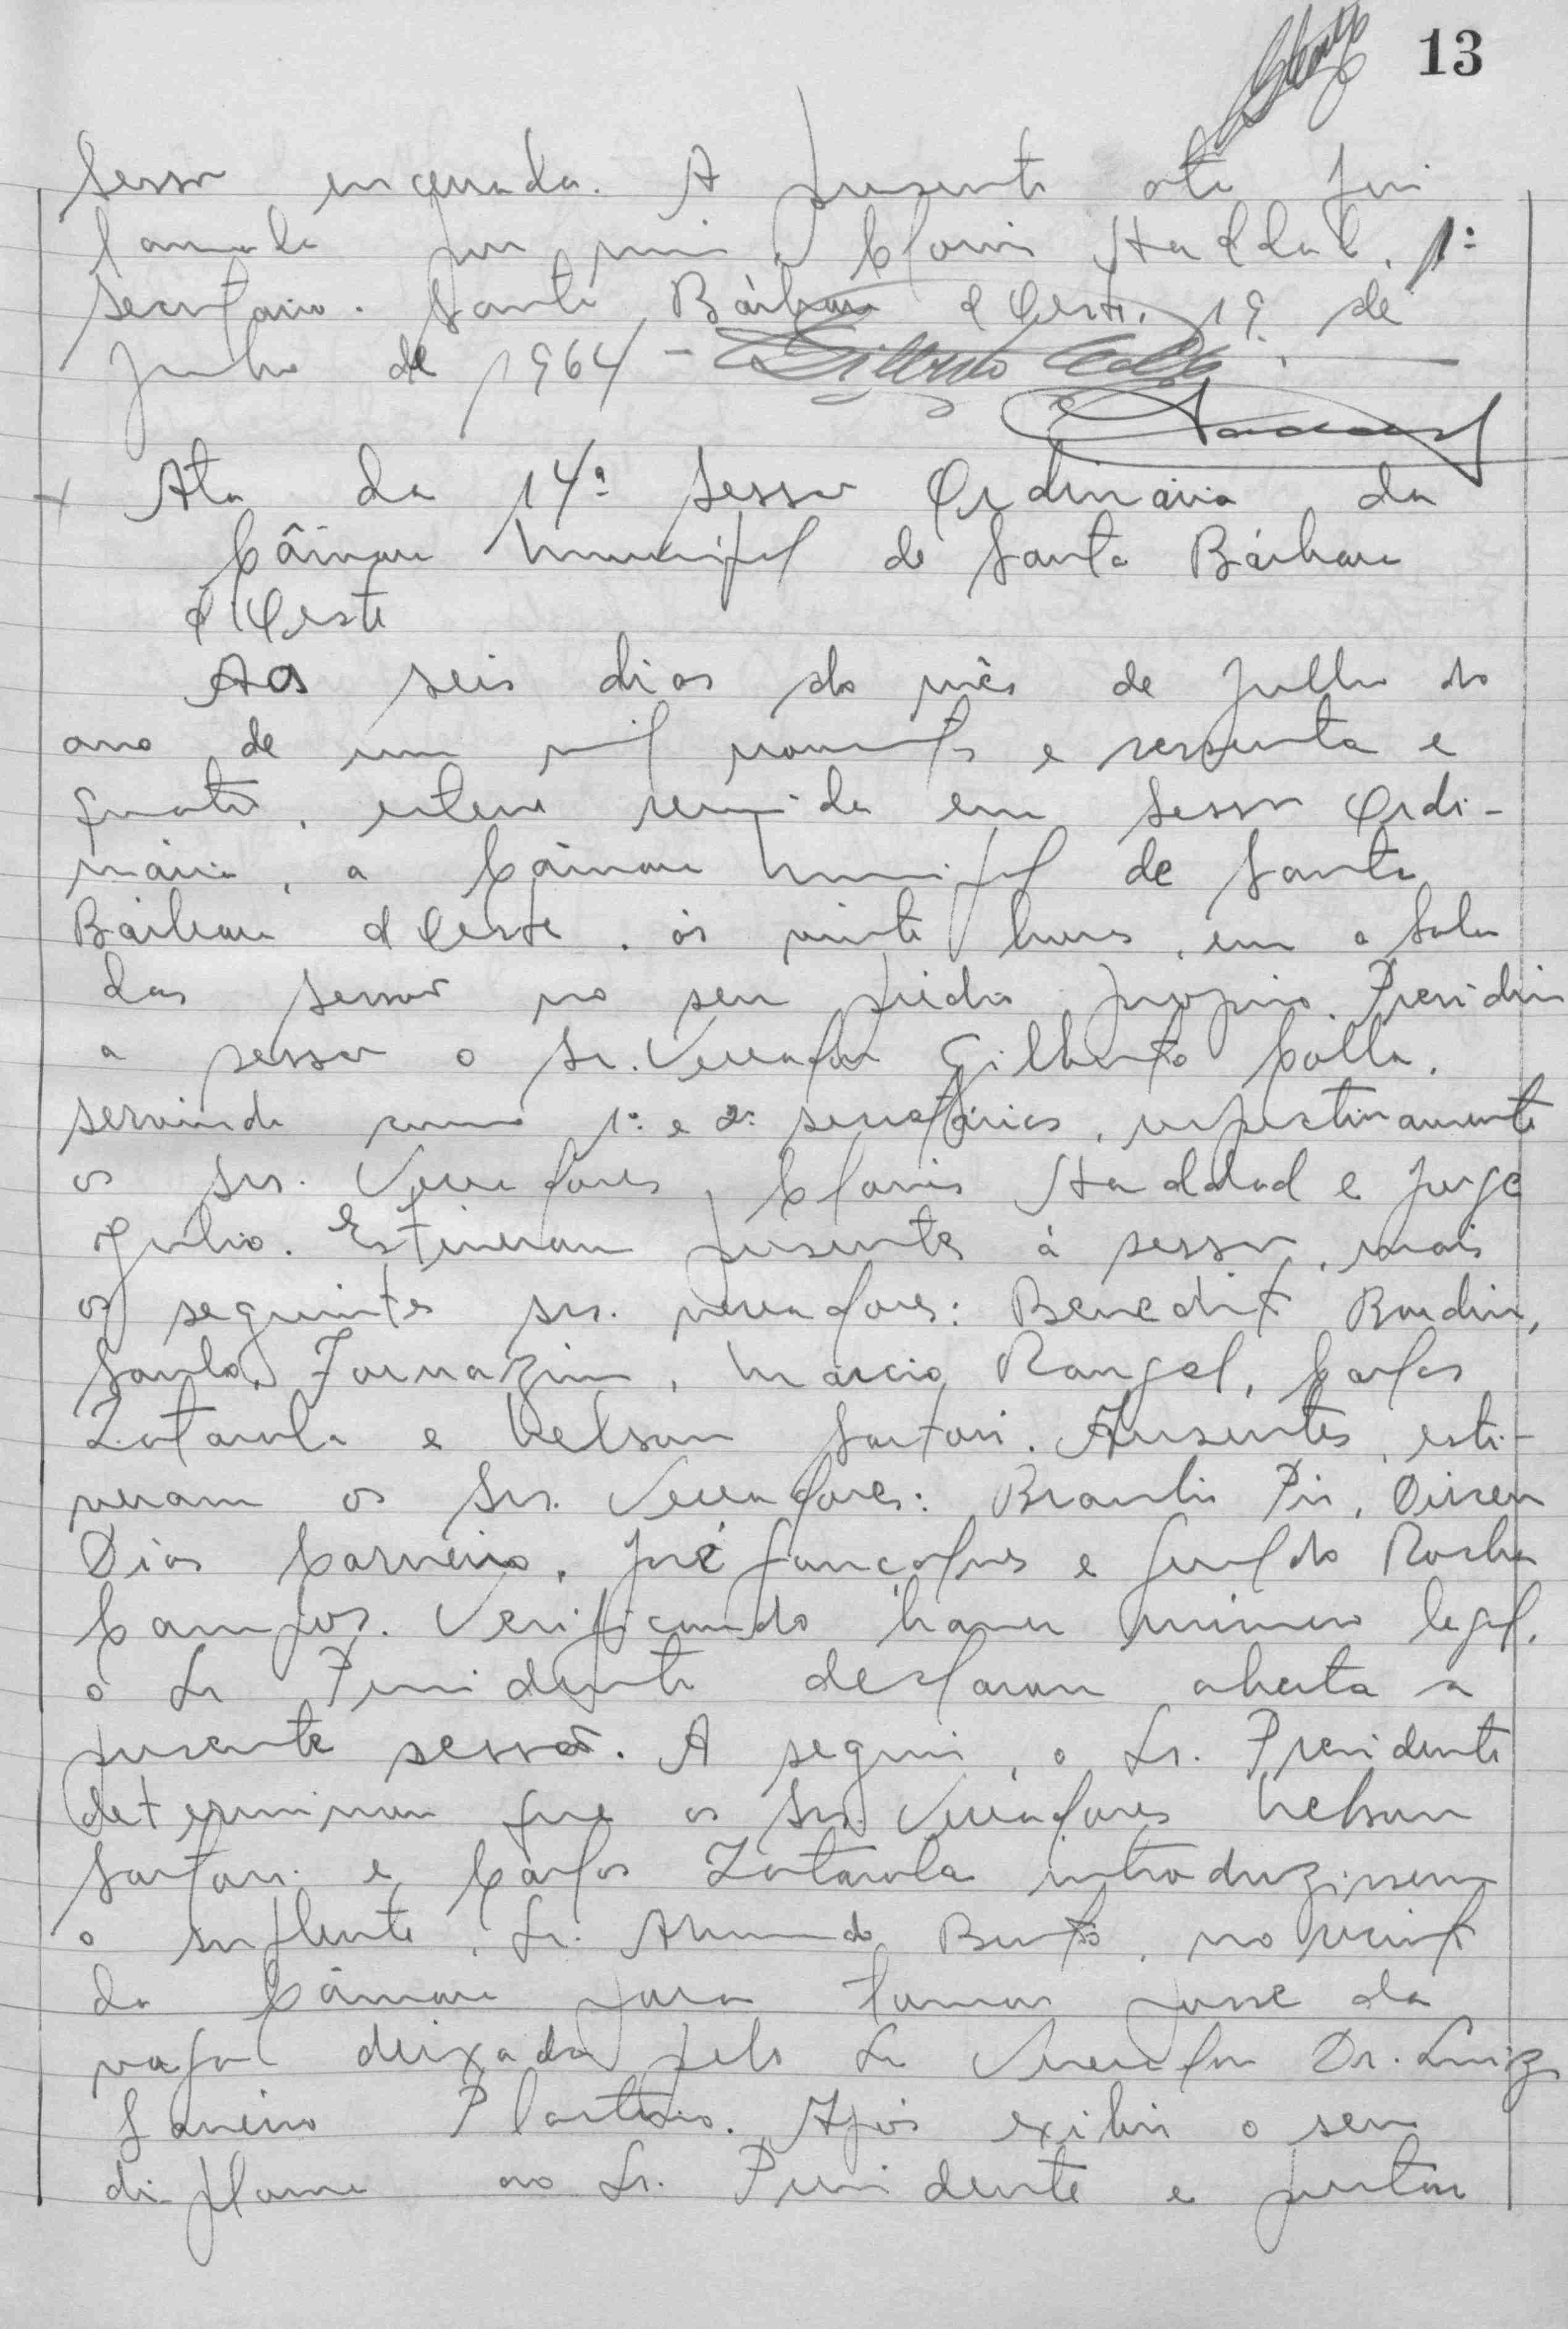 13
sessão encerrada. A presente ata foi
lavrada por mim, Clovis Haddad, 1º
secretario. Santa Bárbara d'Oeste, 19 de
junho de 1964 -
Ata da 14ª Sessão Ordinária da
Câmara Municipal de Santa Bárbara
d'Oeste
Aos seis dias do mês de julho do
ano de um mil novecentos e sessenta e
quatro, esteve reunida em Sessão Ordi-
nária, a Câmara Municipal de Santa
Bárbara d'Oeste, às vinte horas, em a Sala
das Sessões no seu prédio próprio. Presidiu
a sessão o Sr. Vereador Gilberto Colla,
servindo como 1º e 2º secretários, respectivamente
os Srs. Vereadores, Clovis Haddad e Jorge
Julio. Estiveram presentes à sessão, mais
os seguintes srs. vereadores: Benedito Bordin,
Santo Fornazin, Márcio Rangel, Carlos
Zotarola e Nelson Sartori. Ausentes, esti-
veram os Srs. Vereadores: Braulio Pio, Dirceu
Dias Carneiro, José Gonçalves e Geraldo Rocha
Campos. Verificando haver número legal,
o Sr Presidente declarou aberta a
presente sessão. A seguir, o Sr. Presidente
determinou que os Srs. Vereadores Nelson
Sartori e Carlos Zotarola introduzissem
o suplente, Sr. Armando Bento, no recinto
da Câmara para tomar posse da
vaga deixada pelo Sr Vereador Dr. Luiz
Plartino. Após exibir o seu
diploma ao Sr. Presidente e prestar